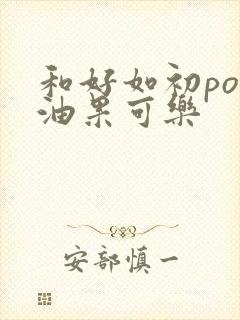 和好如初po
油果可樂
安部慎一